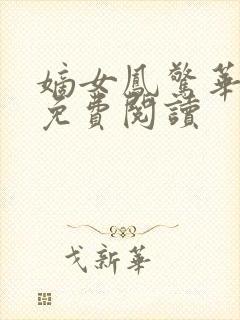 嫡女鳳驚華
免費閱讀
戈新華